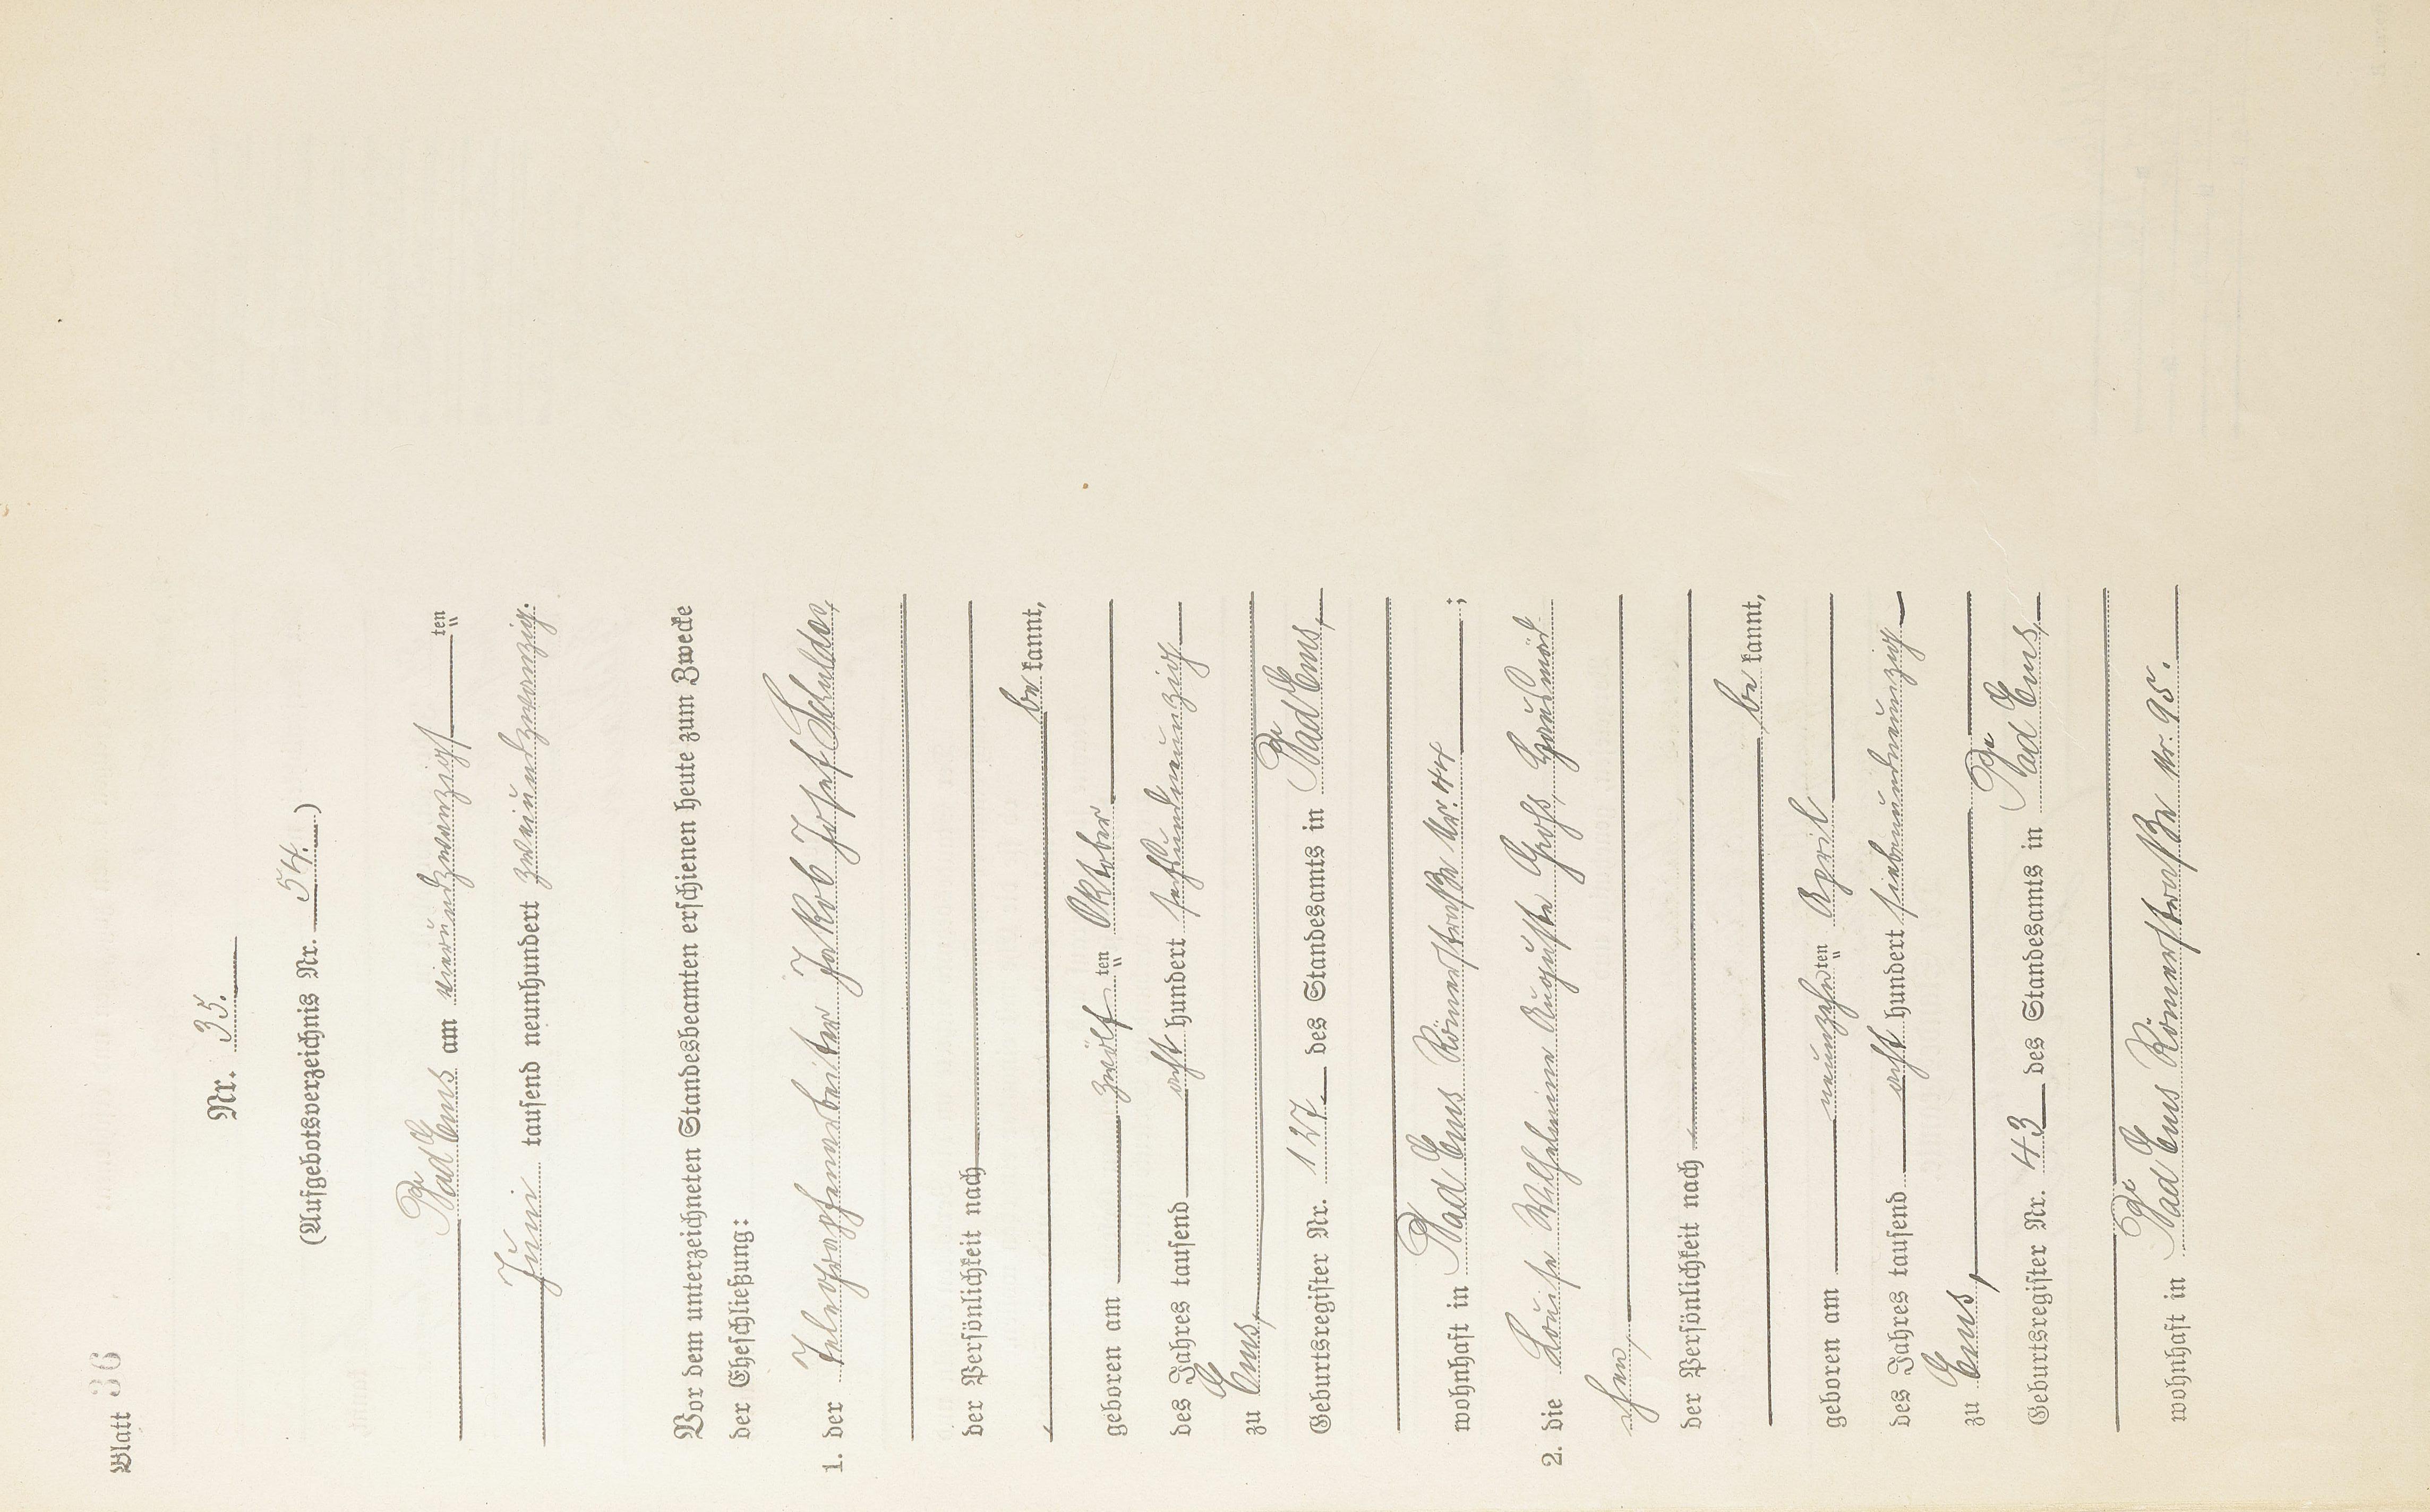 Blatt 36
Nr. 35.
(Aufgebotsverzeichnis Nr. 54.)
Bad Ems am vierundzwanzigs ten
Juni tausend neunhundert zweiundzwanzig.
Vor dem unterzeichneten Standesbeamten erschienen heute zum Zwecke
der Eheschließung:
1. der Telegrafenarbeiter Jakob Josef
der Persönlichkeit nach
be kannt,
geboren am zwölf ten Oktober
des Jahres tausend acht hundert sechsundneunzig
zu Ems,
Geburtsregister Nr. 127 des Standesamts in Bad Ems,
wohnhaft in Bad Ems Römerstraße Nr. 44 ;
2. die Louise Wilhelmine Auguste Groß, Hausmäd
chen,
der Persönlichkeit nach
be kannt,
geboren am neunzehn ten April
des Jahres tausend acht hundert siebenundneunzig
zu Ems,
Geburtsregister Nr. 43 des Standesamts in Bad Ems,
wohnhaft in Bad Ems Römerstraße Nr. 95.